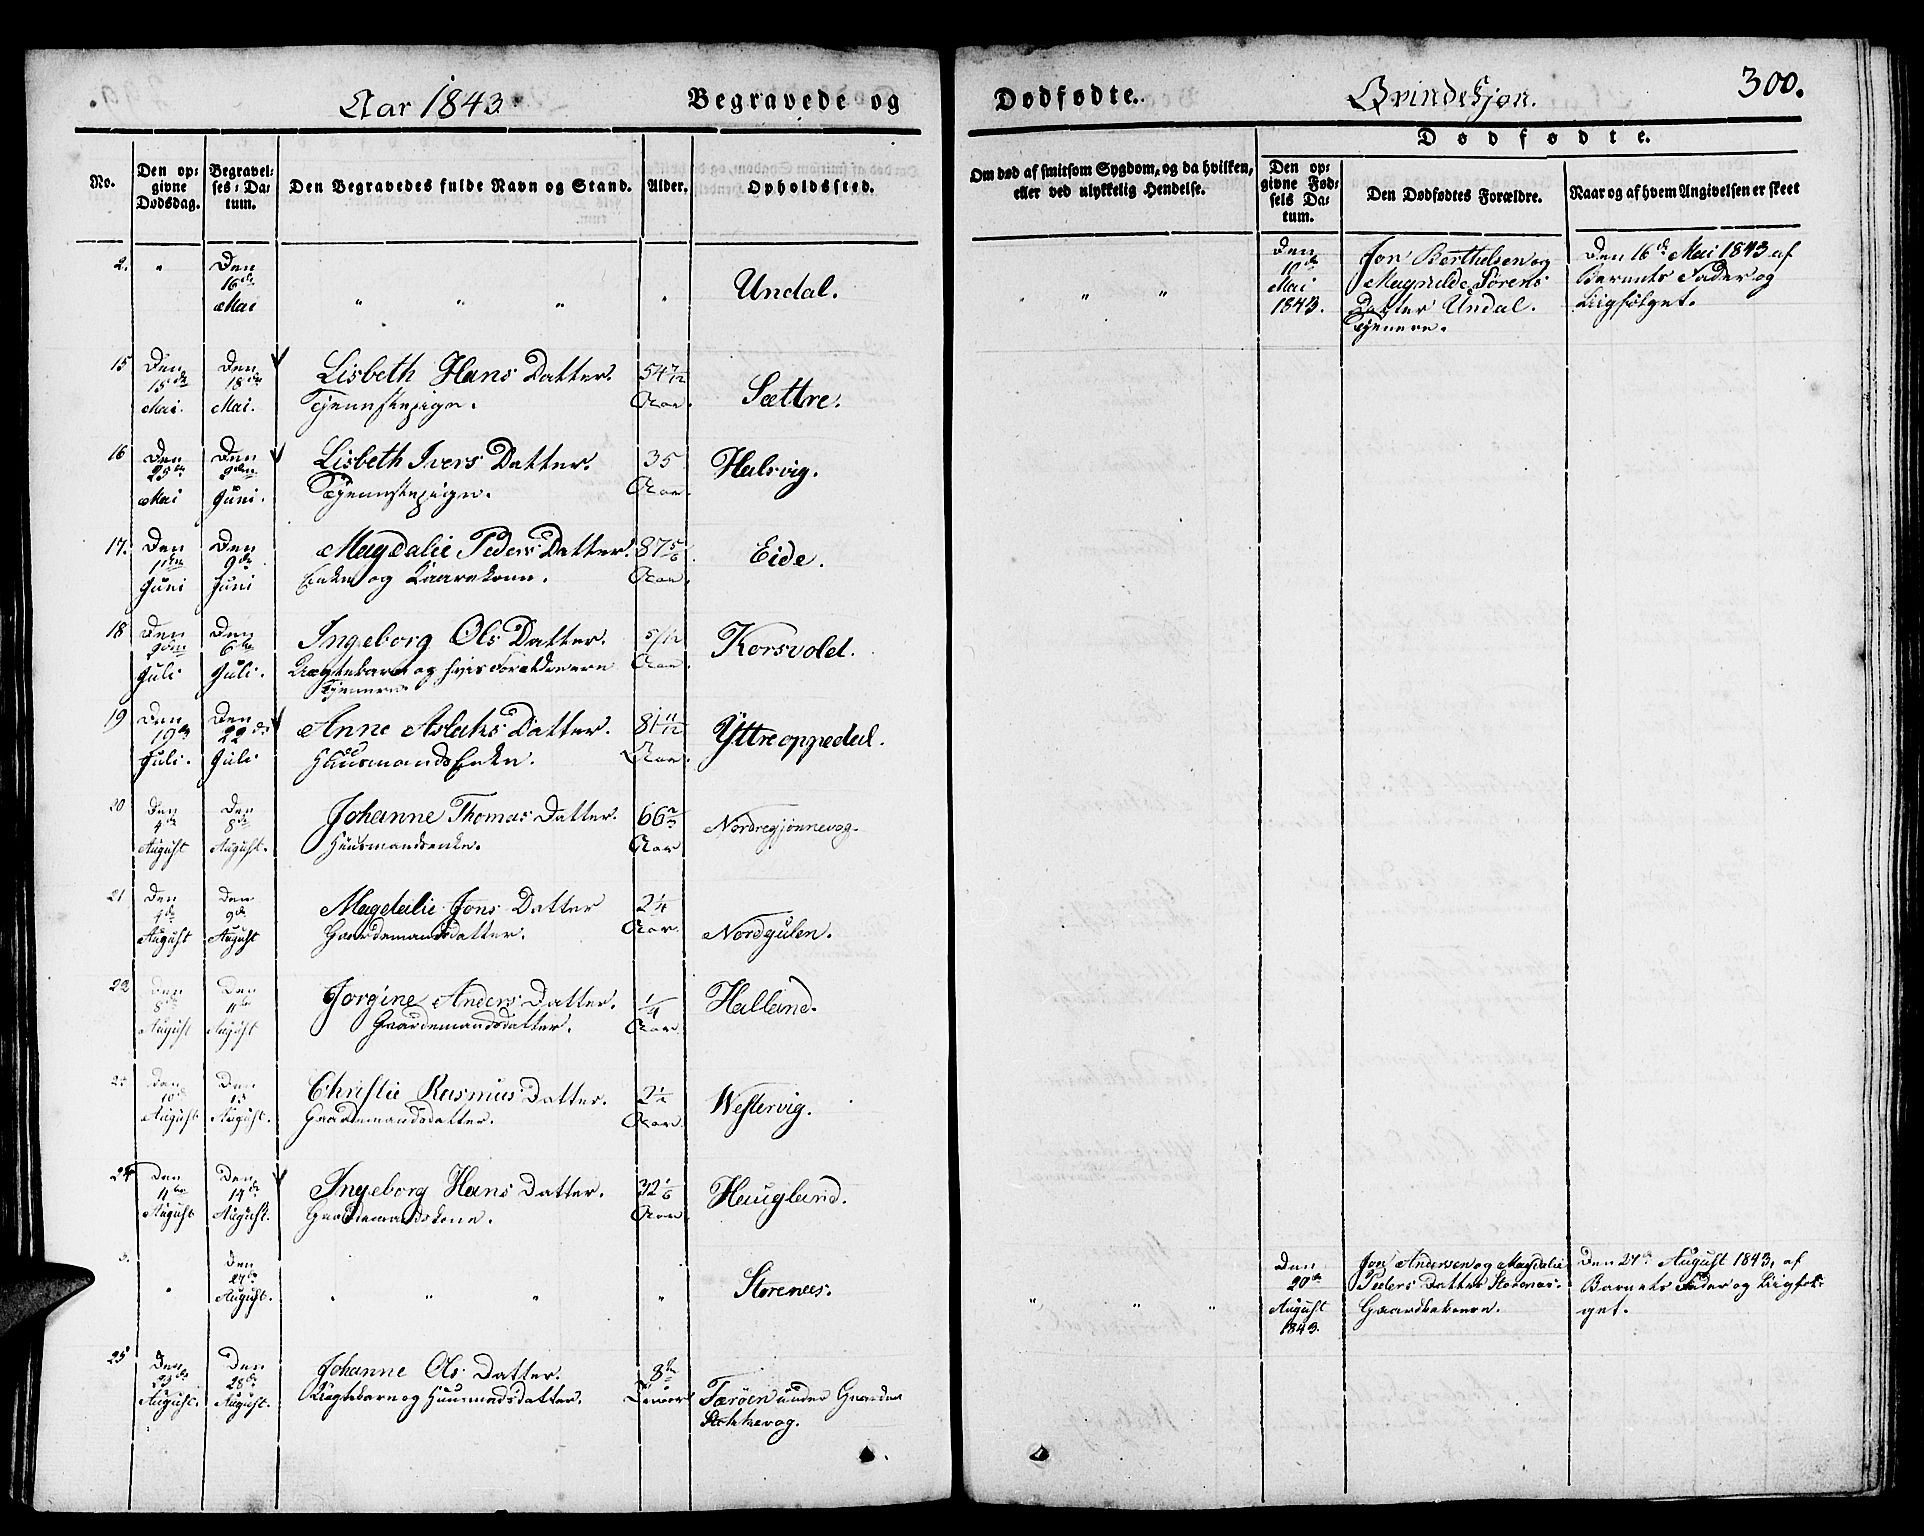 Aar 1843. Begravede og Dødfødte. Qvindekjøn. 300.
No.
Den opgivne Dødsdag.
Begravelses-Datum.
Den Begravedes fulde Navn og Stand.
Alder.
Opholdssted.
Om død af smitsom Sygdom, og da hvilken,
eller ved ulykkelig Hendelse.
Dødfødte.
Den opgivne Fødsels Datum.
Den Dødfødtes Forældre.
Naar og af hvem Angivelsen er skeet
2. " Den 16de Mai " " " " Undal. " " "
Den 10de Mai 1843.
Jon Berthelsen og
Magnilde Sørens
Datter Undal.
Tjenere.
Den 16de Mai 1843 af
Barnets Fader og
Liigfølget.
15 Den 15de Mai. Den 18de Mai. Lisbeth Hans Datter. 54 7/12 Aar. Sættre.
Tjennestepige.
16 Den 25de Mai Den 2den Juni. Lisbeth Ivers Datter. 35 Aar. Halsvig.
Tjennestepige.
17. Den 1ste Juni Den 9de Juni Magdalie Peders Datter. 87 5/6 Aar. Eide.
Enke og Kaarekone.
18 Den 2den Juli Den 6te Juli. Ingeborg Ols Datter. 5/12 Aar. Korsvold.
Uægtebarn og hvis Forældre ere
Tjenere.
19 Den 19de Juli. Den 22de Juli Anne Aslaks Datter. 81 11/12 Aar. Yttreoppedal.
Huusmands Enke.
20 Den 4de August Den 8de August. Johanne Thomas Datter. 66 2/3 Aar Nordregjønnevog.
Huusmandsenke.
21 Den 4de August Den 9de August Magdalie Jons Datter 2 1/4 Aar. Nordgulen.
Gaardemandsdatter.
22 Den 8de August Den 11te August Jorgine Anders Datter. 1/4 Aar. Halland.
Gaardemandsdatter.
Den 10de August. Den 13 August. Christie Rasmus Datter. Aar. Westervig.
Gaardemandsdatter.
24 Den 11te August Den 14de August. Ingeborg Hans Datter. 32 1/6 Aar. Haugland.
Gaardemandskone.
3. " Den 27de August. " " " " Storenes. " " "
Den 20de August 1843.
Jon Andersen og Magdalie
Peders Datter Storenæs.
Den 27de August 1843, af
Barnets Fader og Liigføl-
get.
25 Den August. Den 28de August. Johanne Ols Datter. 8te Færöen under Gaarden
Uægtebarn og Huusmadsdatter.